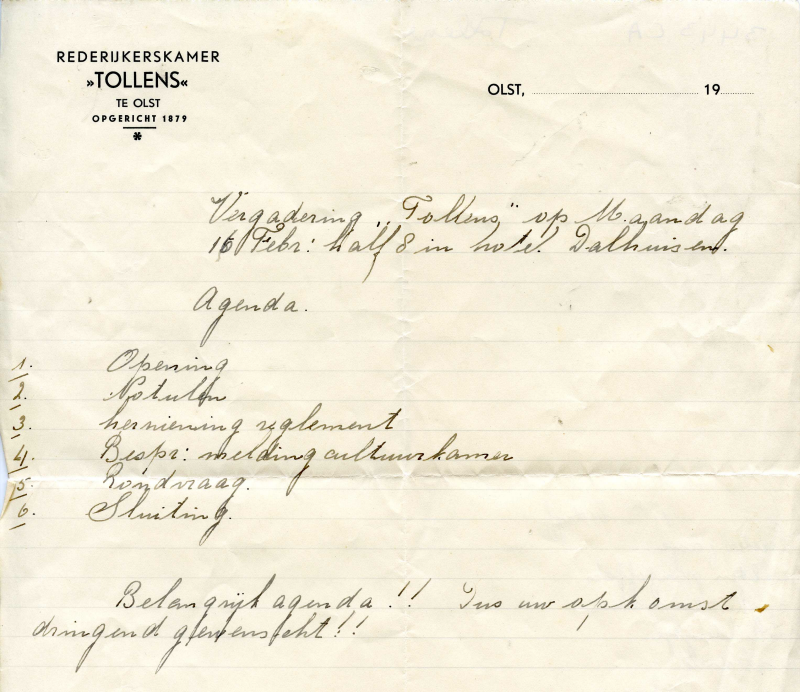 REDERIJKERSKAMER
»TOLLENS«
TE OLST
OPGERICHT 1879
*
OLST, .......... 19......
Vergadering „Tollens" op Maandag
16 Febr: half 8 in hotel Dalhuisen.
Agenda.
1. Opening
2. Notulen
3. herniening reglement
4. Bespr: melding cultuurkamer
5. Rondvraag.
6. Sluiting.
Belangrijk agenda!! Dus uw opkomst
dringend gewenscht!!